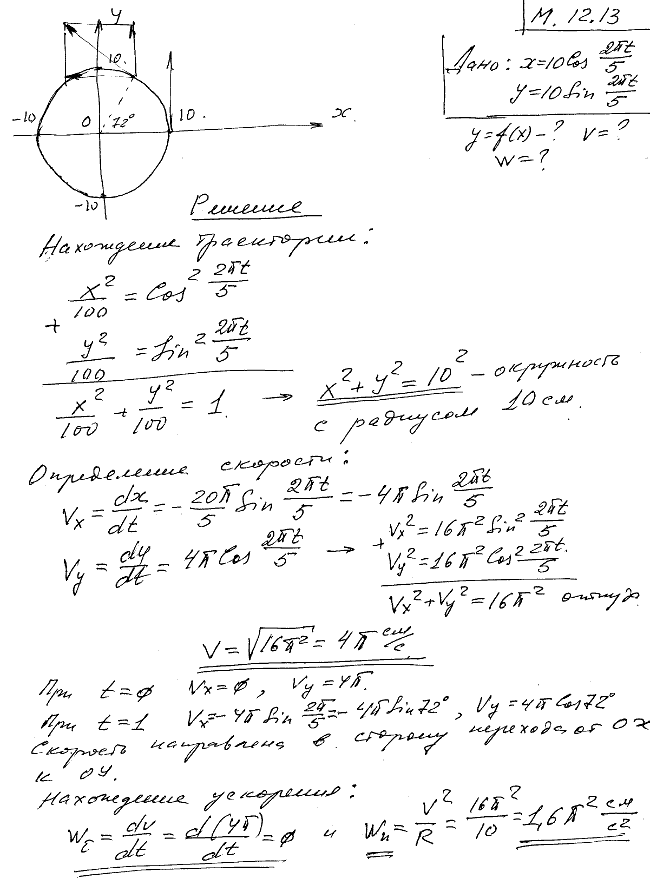 М. 12.13
Дано: x=10Cos 2πt/5
y=10Sin 2πt/5
y=f(x)-? v=?
w=?
y
10.
-10 0 72° 10. x.
-10
Решение
Нахождение траектории:
x²/100 = Cos² 2πt/5
+
y²/100 = Sin² 2πt/5
x²/100 + y²/100 = 1. → x²+y²=10² - окружность
с радиусом 10 см.
Определение скорости:
Vx = dx/dt = -20π/5 Sin 2πt/5 = -4π Sin 2πt/5
Vy = dy/dt = 4π Cos 2πt/5 → + Vx²=16π² Sin² 2πt/5
Vy²=16π² Cos² 2πt/5
Vx²+Vy²=16π² откуда
V=√16π² = 4π см/с.
При t=0 Vx=0, Vy=4π.
При t=1 Vx=-4π Sin 2π/5=-4π Sin72°, Vy=4π Cos72°
Скорость направлена в сторону перехода от OX
к OY.
Нахождение ускорения:
Wτ = dv/dt = d(4π)/dt = 0 и Wn = V²/R = 16π²/10 = 1,6π² см/с²